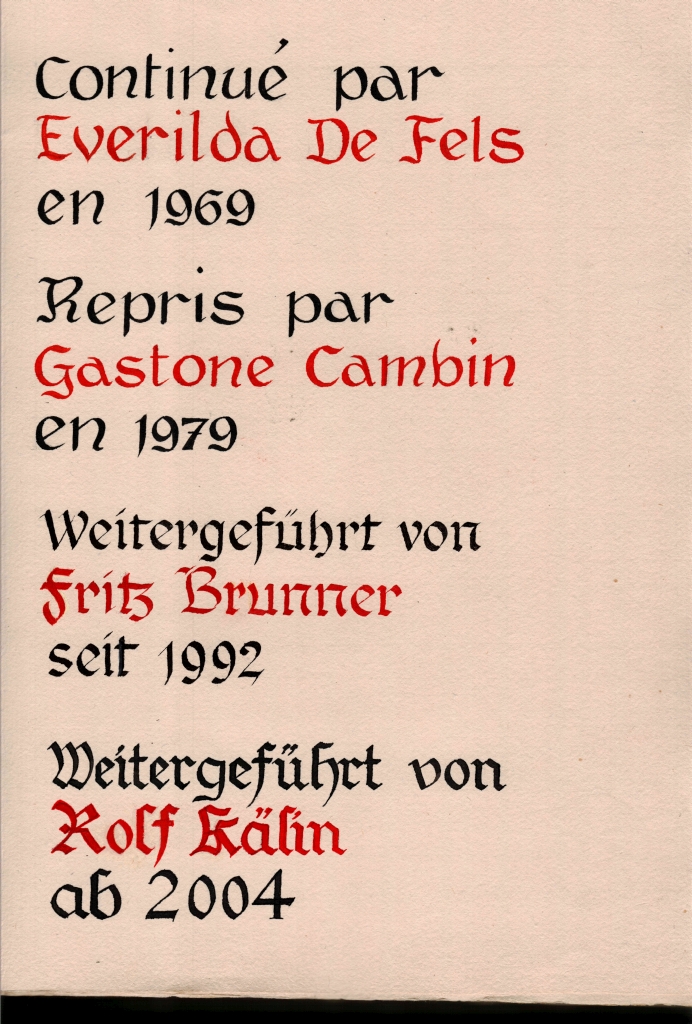 Continué par
Everilda De Fels
en 1969
Repris par
Gastone Cambin
en 1979
Weitergeführt von
Fritz Brunner
seit 1992
Weitergeführt von
Rolf Kälin
ab 2004